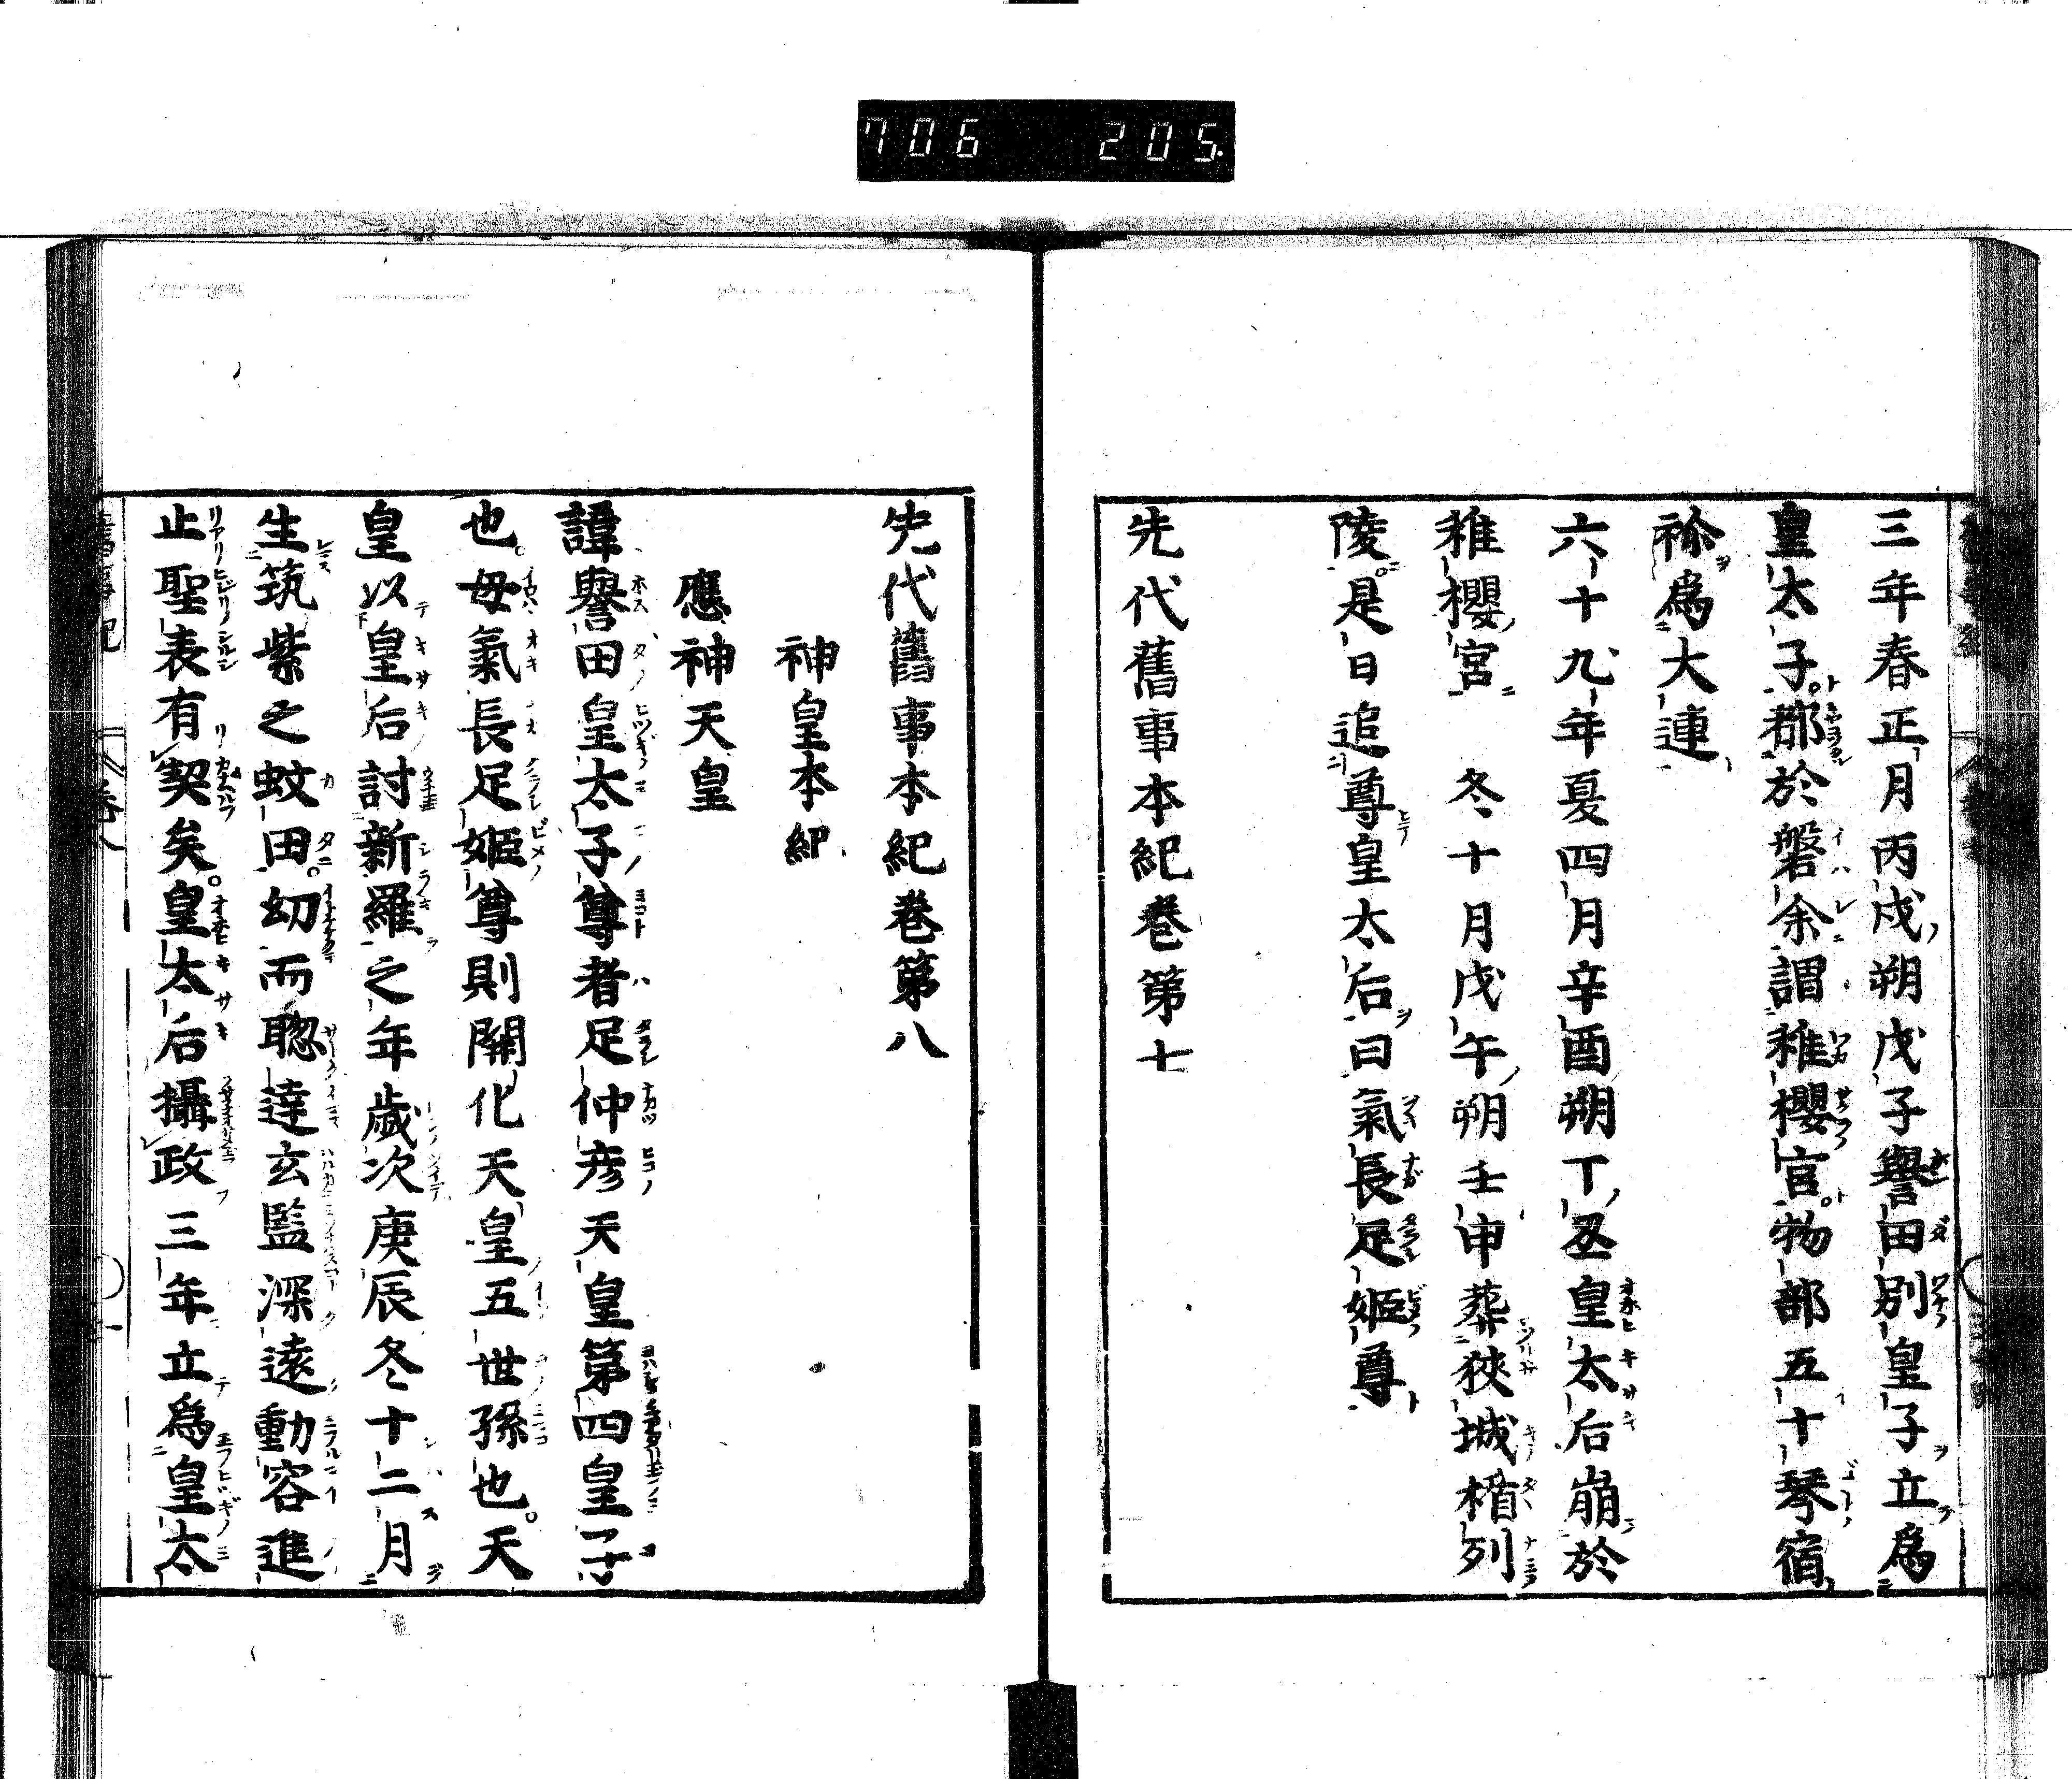 706 205
三年春正月丙戌朔戊子譽田別皇子立爲
皇太子都於磐余謂稚櫻宮物部五十琴宿
祢爲大連
六十九年夏四月辛酉朔丁丑皇太后崩於
稚櫻宮 冬十月戊午朔壬申葬狹城楯列
陵是日追尊皇太后曰氣長足姬尊
先代舊事本紀卷第七
先代舊事本紀卷第八
神皇本紀
應神天皇
諱譽田皇太子尊者足仲彦天皇第四皇子
也母氣長足姬尊則開化天皇五世孫也天
皇以皇后討新羅之年歲次庚辰冬十二月
生筑紫之蚊田幼而聰達玄監深遠動容進
止聖表有契矣皇太后攝政三年立爲皇太